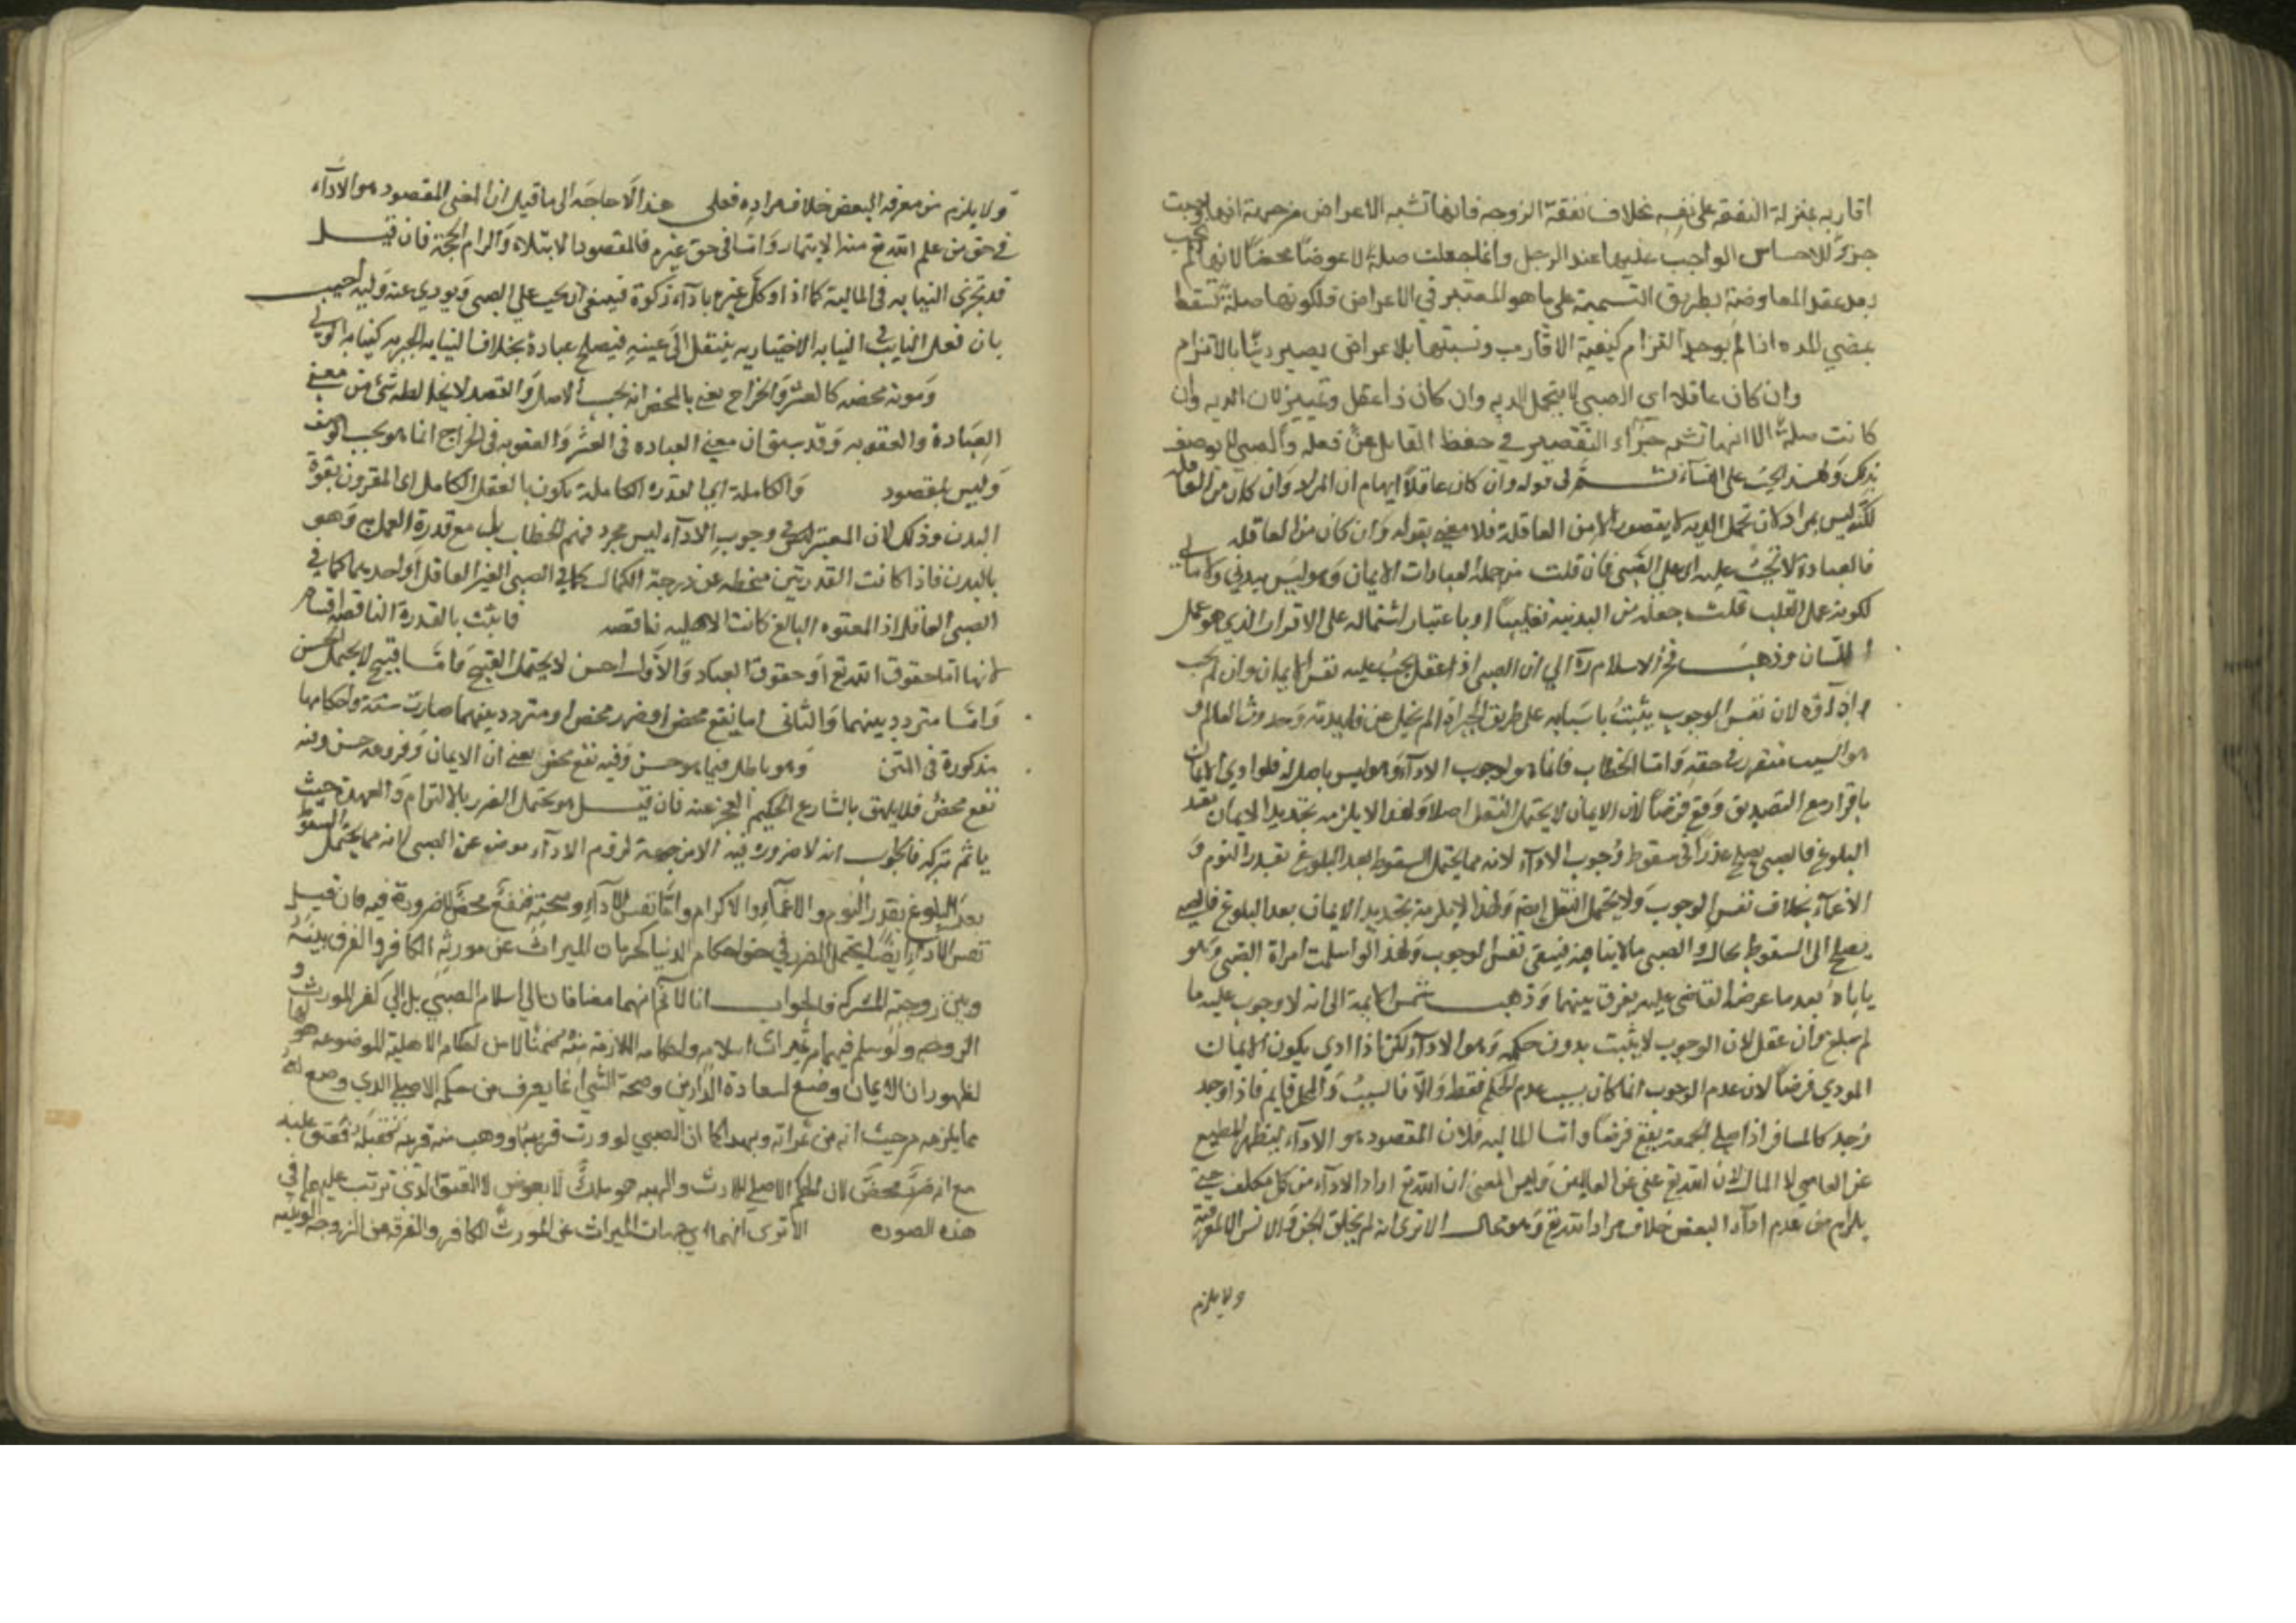 اقاربه بمنزلة النفقة على نفسه بخلاف نفقة الزوجة فانها تشبه الاعراض من جهة انها وجبت
جزاء للاحتباس الواجب عليها عند الرجل وانما جعلت صلة لا عوضا محضا لانها لم تجب
بعقد المعاوضة بطريق التسمية على ما هو المعتبر في الاعراض فلكونها صلة تسقط
بمضي المده اذا لم يوجد التزام كنفقة الاقارب ونسبتها بالاعراض يصير دينا بالالتزام
وان كان عاقلا اى الصبي لا يتحمل الديه وان كان ذا عقل وتمييز لان الديه وان
كانت صلة الا انها تشبه جزاء التقصير في حفظ القاتل عن فعله والصبي لا يوصف
بذلك ولهذا لا يجب على النساء ثم في قوله وان كان عاقلا ايهام ان المراد وان كان من العاقله
لكنه ليس بمراد لان تحمل الديه لا يتصور الا من العاقلة فلا معنى بقوله وان كان من العاقله
فالعبادة لا تجب عليه اى على الصبى فان قلت من جملة العبادات الايمان وهو ليس ببدني ولا مالي
لكونه عمل القلب قلت جعله من البدنية تغليبا او باعتبار اشتماله على الاقرار الذي هو عمل
اللسان وذهب فخر الاسلام ره الي ان الصبى اذا عقل يجب عليه نفس الايمان وان لم يجب
اداؤه لان نفس الوجوب يثبت باسبابه على طريق الجبر اذا لم يخل عن فايدته وحدوث العالم و
هو السبب متقرر في حقه واما الخطاب فانما هو لوجوب الاداء وهو ليس باصل له فلو ادى الايمان
باقرار مع التصديق وقع فرضا لان الايمان لا يحتمل النفل اصلا ولهذا لا يلزمه تجديد الايمان بعد
البلوغ فالصبى يصلح عذرا في سقوط وجوب الاداء لانه مما يحتمل السقوط بعد البلوغ بعذر النوم و
الاغماء بخلاف نفس الوجوب ولا يحتمل النفل ايضا ولهذا لا يلزمه تجديد الايمان بعد البلوغ
يصلح الى السقوط بحال والصبى مالا ينافيه فيبقى نفس الوجوب ولهذا لو اسلمت امراة الصبى وهو
ياباه بعد ما عرض القاضى عليه يفرق بينهما وذهب شمس الايمة الى انه لا وجوب عليه ما
لم يبلغ وان عقل لان الوجوب لا يثبت بدون حكمه وهو الاداء لكن اذا ادى يكون الايمان
المودي فرضا لان عدم الوجوب انما كان بسبب عدم الحكم فقط والا فالسبب والمحل قايم فاذا وجد
وجد كالمسافر اذا صلى الجمعة يقع فرضا واما الماليه فلان المقصود هو الاداء ليظهر المطيع
عن العاصي لا المال لان الله تع غني عن العالمين وليس المعنى ان الله تع اراد الاداء من كل مكلف حتى
يلزم من عدم اداء البعض خلاف مراد الله تع وهو محال الا ترى انه لم يخلق الجن والانس الا لمعرفته
ولا يلزم
ولا يلزم من معرفة البعض خلاف مراده فعلى هذا لا حاجه الى ما قيل ان المعنى المقصود هو الاداء
في حق من علم الله تع منه الايتمار واما في حق غيره فالمقصود الابتلاء والزام الحجة فان قيل
قد تجزى النيابه فى المالية كما اذا وكل غيره باداء زكوة فينبغى ان يجب على الصبى ويودي عنه وليه اجيب
بان فعل النايب في النيابه الاختياريه ينتقل الى عينه فيصلح عبادة بخلاف النيابه الجبريه كنيابه الولي
ومونه محضه كالعشر والخراج يعنى بالمحض انه بحسب الاصل والقصد لا يخالطه شئ من معنى
العبادة والعقوبه وقد سبق ان معنى العباده فى العشر والعقوبه فى الخراج انما هو بحسب الوصف
وليس بمقصود والكاملة اى القدره الكاملة تكون بالعقل الكامل اى المقرون بقوة
البدن وذلك لان المعتبر في وجوب الاداء ليس مجرد فهم الخطاب بل مع قدرة العمل به وهو
بالبدن فاذا كانت القدرتين منحطه عن درجة الكمال كما في الصبى الغير العاقل او احديهما كما في
الصبى العاقل او المعتوه البالغ كانت الاهليه ناقصه فما يثبت بالقدرة الناقصه اقسام
لانها اما حقوق الله تع او حقوق العباد والاول احسن لا يحتمل القبح واما قبيح لا يحتمل الحسن
واما متردد بينهما والثانى اما نفع محض او ضرر محض او متردد بينهما صارت ستة واحكامها
مذكورة فى المتن وهو باطل فيما هو حسن وفيه نفع محض يعنى ان الايمان وفروعه حسن وفيه
نفع محض فلا يليق بالشارع الحكيم الحجز عنه فان قيل هو يحتمل الضرر بالالتزام والعهدة حيث
ياثم بتركه فالجواب انه لا ضرورة فيه الا من جهة لزوم الاداء وهو موضوع عن الصبى لانه مما يحتمل السقوط
بعد البلوغ بعذر النوم والاغماء والاكراه واما نفس الاداء وصحته فنفع محض لا ضرورة فيه فان قيل
نفس الاداء ايضا يحتمل الضرر في حق احكام الدنيا كحرمان الميراث عن مورثه الكافر والفرق بينه
وبين زوجته المشركه فالجواب انا لا نم انهما مضافان الي اسلام الصبي بل الي كفر المورث و
الزوجه ولو سلم فهما من ثمرات اسلامه واحكامه اللازمة منه ضمنا لا من احكامه الاصلية الموضوعه هو لها
لظهور ان الايمان وضع لسعادة الدارين وصحة الشئ انما يعرف من حكمه الاصلي الذي وضع له
مما يلزمه من حيث انه من ثمراته وبهذا كما ان الصبي لو ورث قريبه او وهب منه قريبه فقبله يعتق عليه
مع انه ضرر محض لان الحكم الاصلي للارث والهبه هو ملك بلا عوض لا العتق الذي ترتب عليه في
هذه الصوره الا ترى انهما اي حرمان الميراث عن المورث الكافر والفرقه من الزوجه الوثنيه